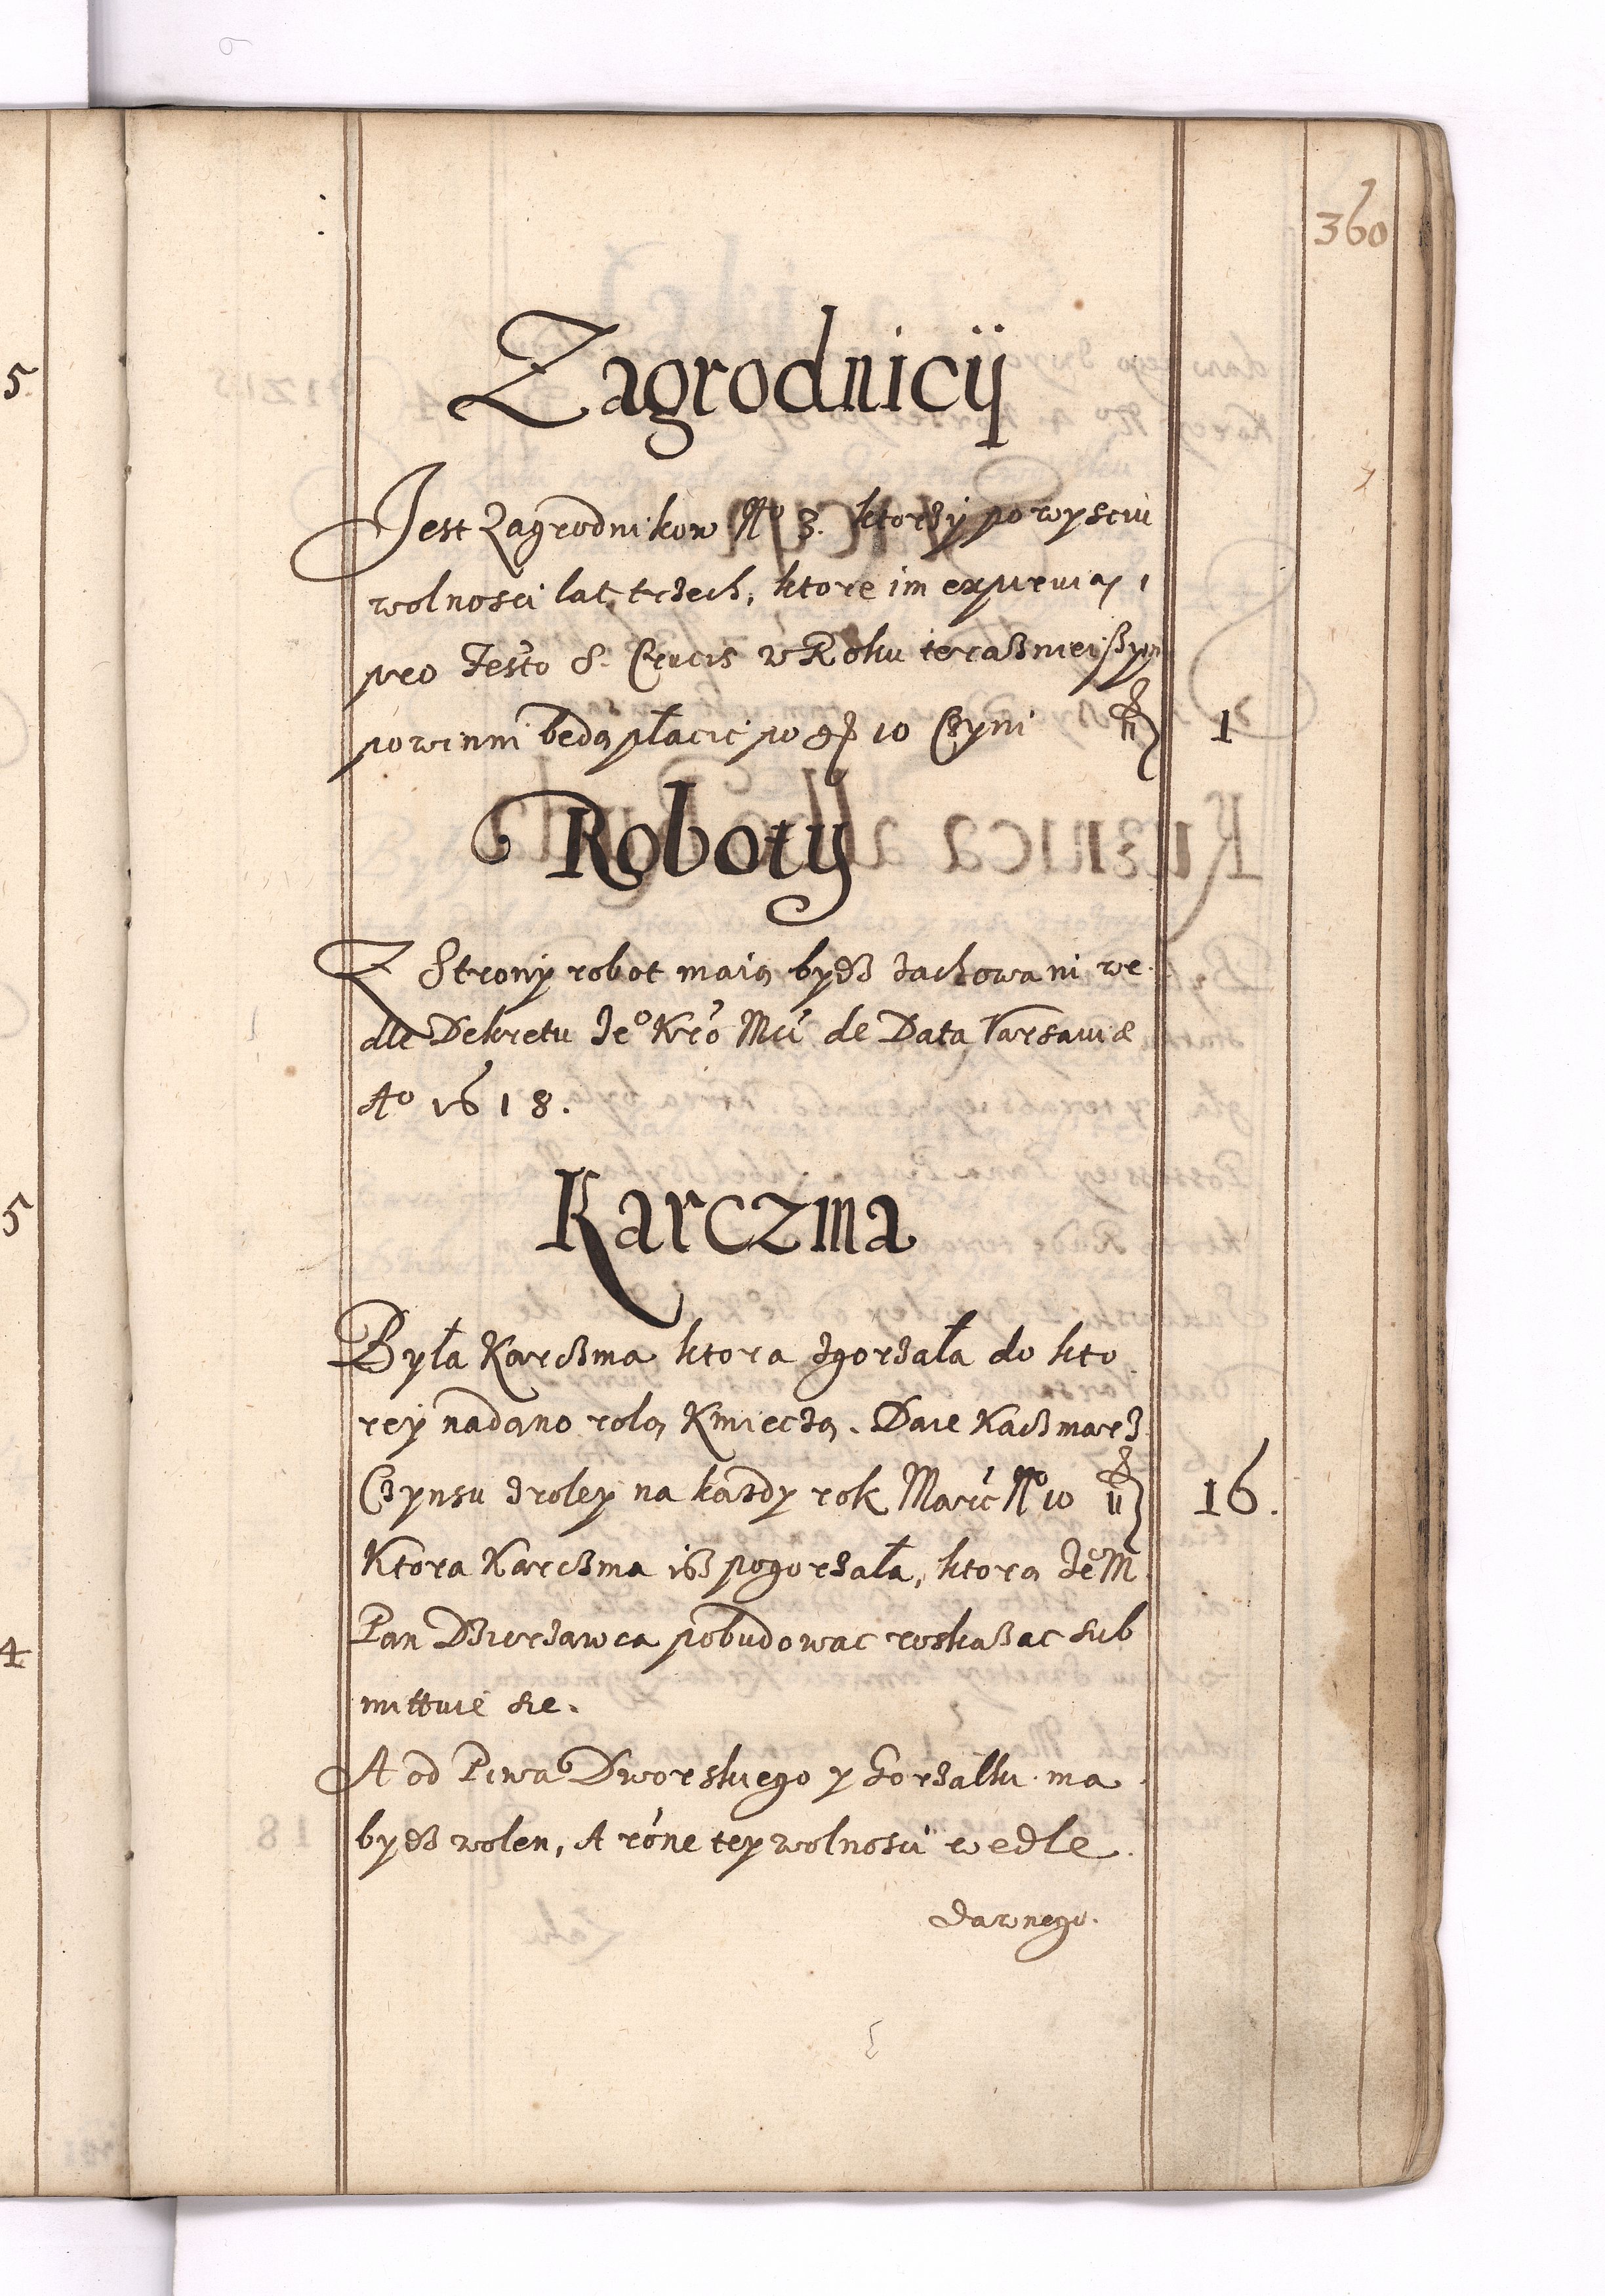 360
Zagrodnicÿ
Jest Zagrodnikow No 3. ktorzy po wysciu
wolnosci lat trzech, ktore im expiruią
pro Festo S. Crucis w Roku teraßnieißym
powinni będą płacić po gr 10 Czyni fl 1
Roboty
Z Strony robot maią bydź zachowani we
dle Dekretu Jeo Kro Mci de Data Varsauiæ
Ao 1618.
Karczma
Była Karczma ktora zgorzała do kto
rey nadano rolą Kmieczą. Daie Kaczmarz
Czynsu z roley na kazdy rok Marc No 10 fl 16.
Ktora Karczma isz pogorzała, ktorą Je M
Pan Dzierzawca pobudowac roskazac sub
mittuie sie.
A od Piwa Dworskiego y Gorzałki ma
bydź wolen, A rone tey wolnosci wedle
dawnego.
5
5
4